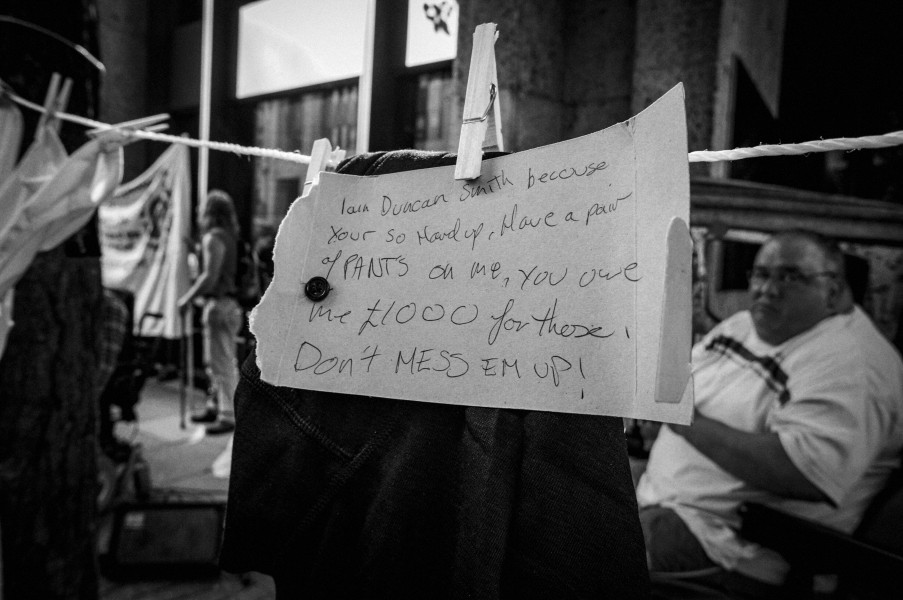 Iain Duncan Smith because
Your so Hard up, Have a pair
of PANTS on me, You owe
me £1000 for these.
Don't MESS EM UP!